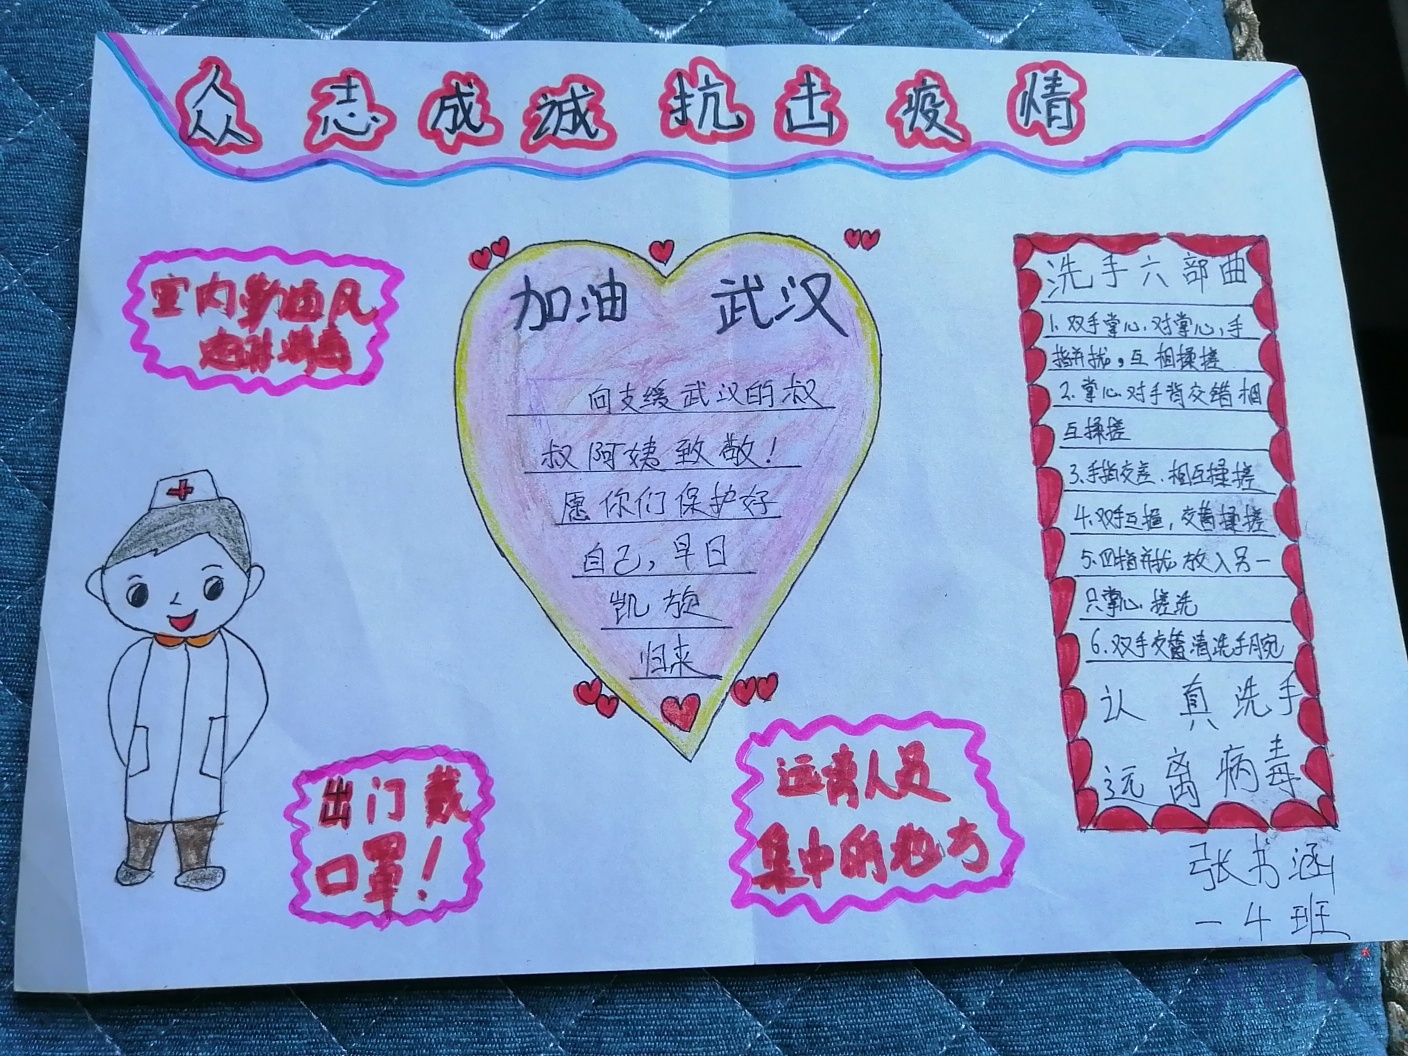 众志成诚抗击疫情
室内勤通风
加油 武汉
向支缓武汉的叔
叔阿姨致敬！
愿你们保护好
自己，早日
凯旋
归来
出门戴
口罩！
远离人员
集中的地方
洗手六部曲
1.双手掌心.对掌心,手
指并拢，互相揉搓
2.掌心对手背交错相
互揉搓
3.手指交差.相互揉搓
4.双手互握，交替揉搓
5.四指并拢放入另一
只掌心.搓洗
6.双手交替清洗手腕
认真洗手
远离病毒
张书涵
一4班